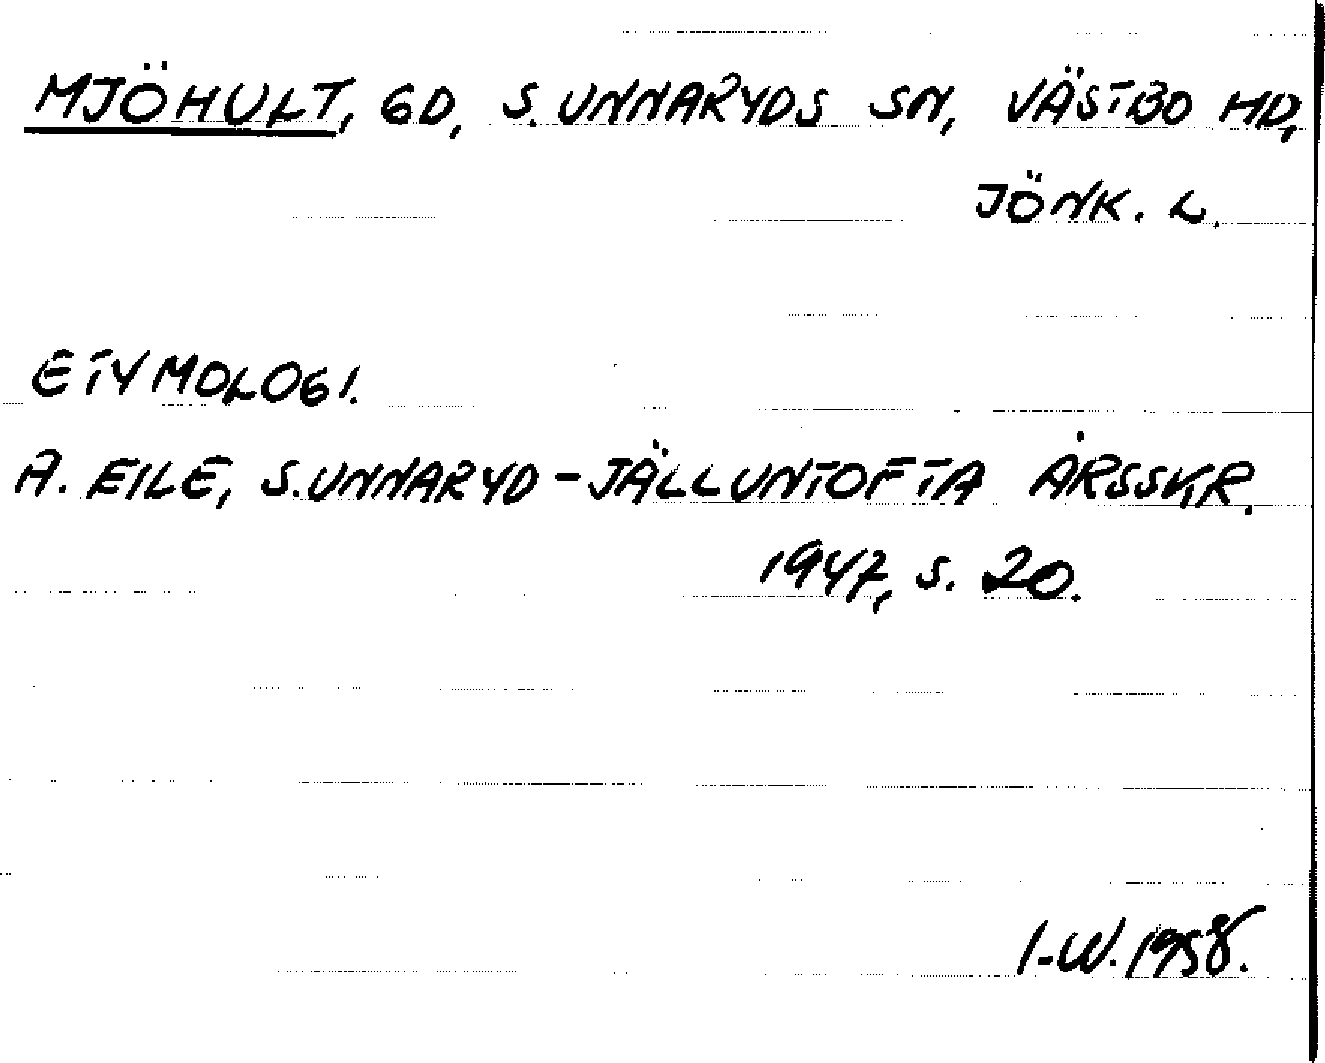 MJÖHULT, GD, S. UNNARYDS SN, VÄSTBO HD,
JÖNK. L.
ETYMOLOGI.
A. EILE, S. UNNARYD-JÄLLUNTOFTA ÅRSSKR.
1947, s. 20.
I-W. 1958.